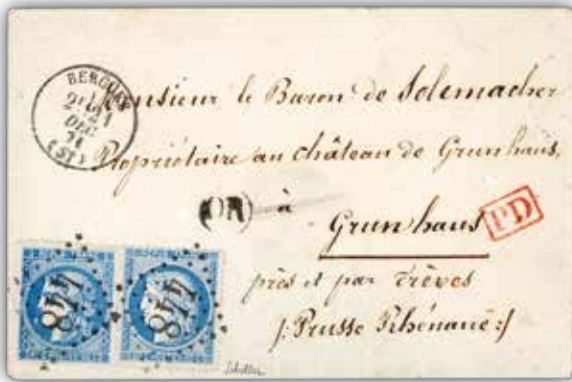 BERGUES
2E
21
DEC
71
(57)
Monsieur le Baron de Solemacher
Propriétaire au château de Grunhaus,
(OR) à
Grunhaus PD
près et par Trèves
/: Prusse Rhénane :/
448 448
Schiller